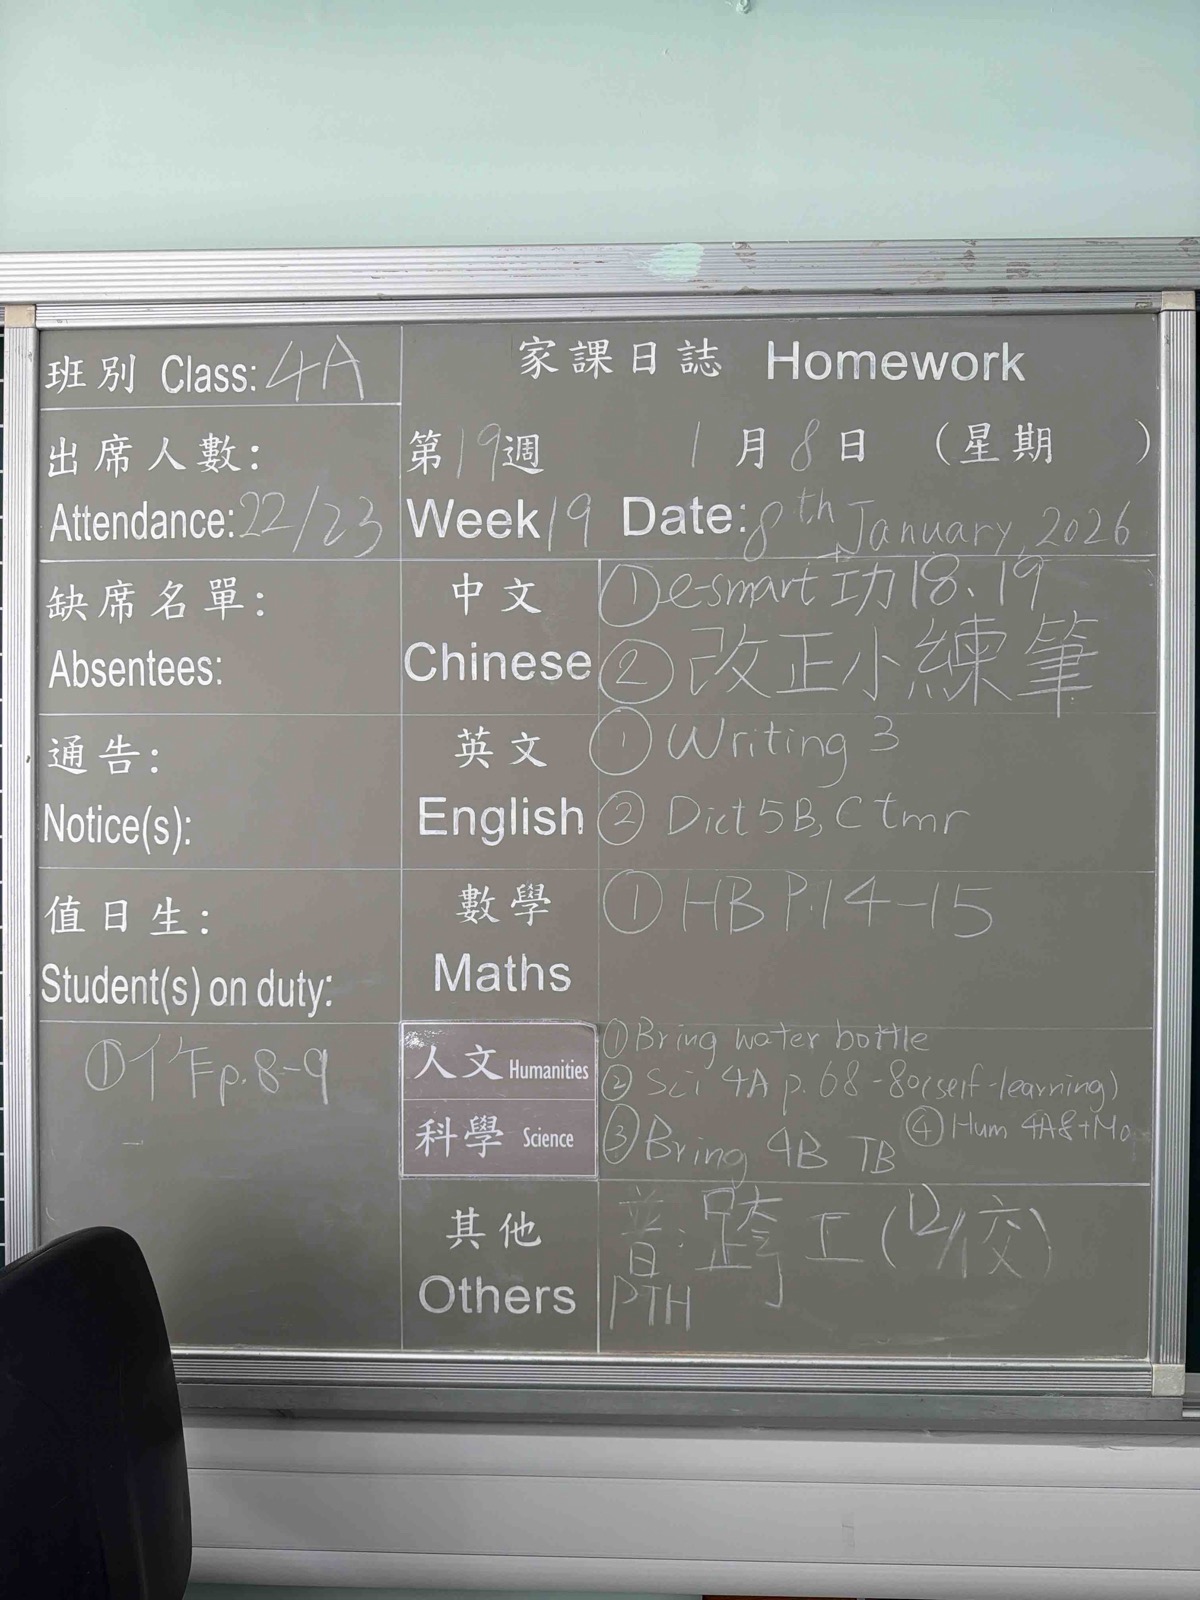 班別 Class: 4A
家課日誌 Homework
出席人數:
Attendance: 22/23
第19週 1月8日 (星期 )
Week 19 Date: 8th January, 2026
缺席名單:
Absentees:
中文
Chinese
① e-smart 功18、19
② 改正小練筆
通告:
Notice(s):
英文
English
① Writing 3
② Dict 5B, C tmr
值日生:
Student(s) on duty:
數學
Maths
① HB P.14-15
① 作 p.8-9
人文 Humanities
科學 Science
① Bring water bottle
② Sci 4A p.68-80 (self-learning)
③ Bring 4B TB
④ Hum 4A
其他
Others
普: 跨工 (12/1交)
PTH